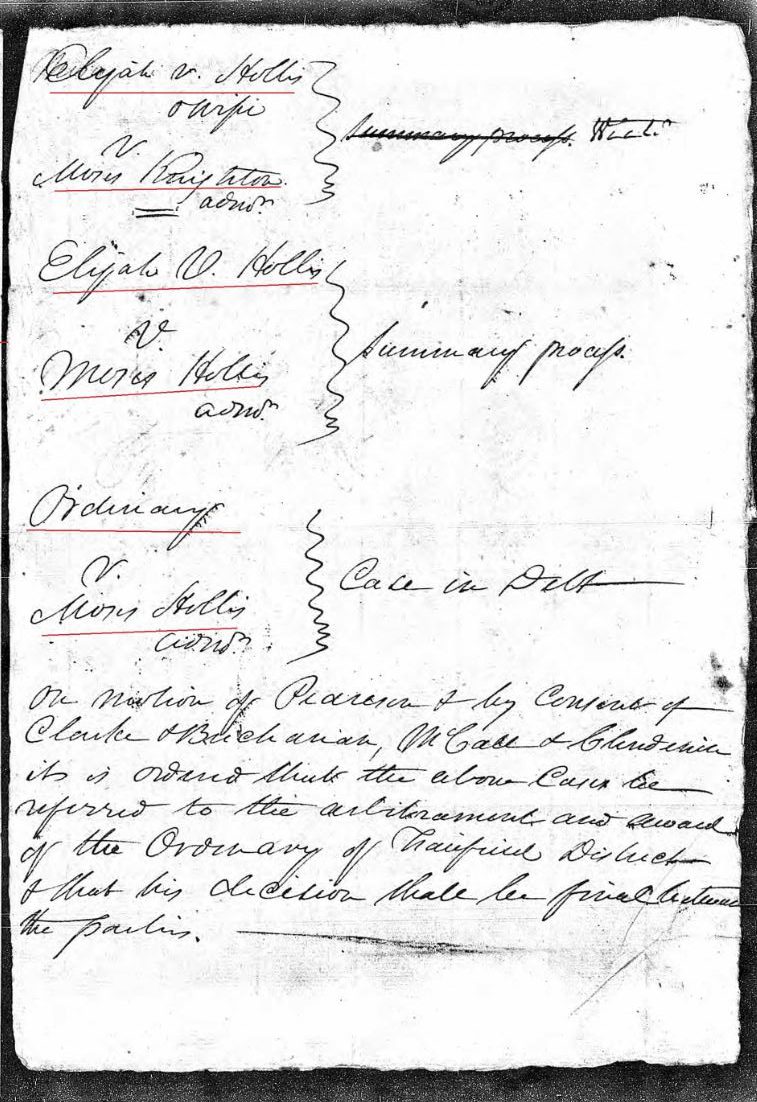 Elijah V. Hollis
& wife
V.
Moses Knighton
admr.
Elijah V. Hollis
V
Moses Hollis
admr.
Summary process.
Ordinary
V.
Moses Hollis
admr.
Case in Debt
On motion of Peareson & by consent of
Clarke & Buchanan, McCall & Clendenin
its is ordered that the above Cases be
referred to the arbitrament and award
of the Ordinary of Fairfield District
& that his decision shall be final between
the parties.